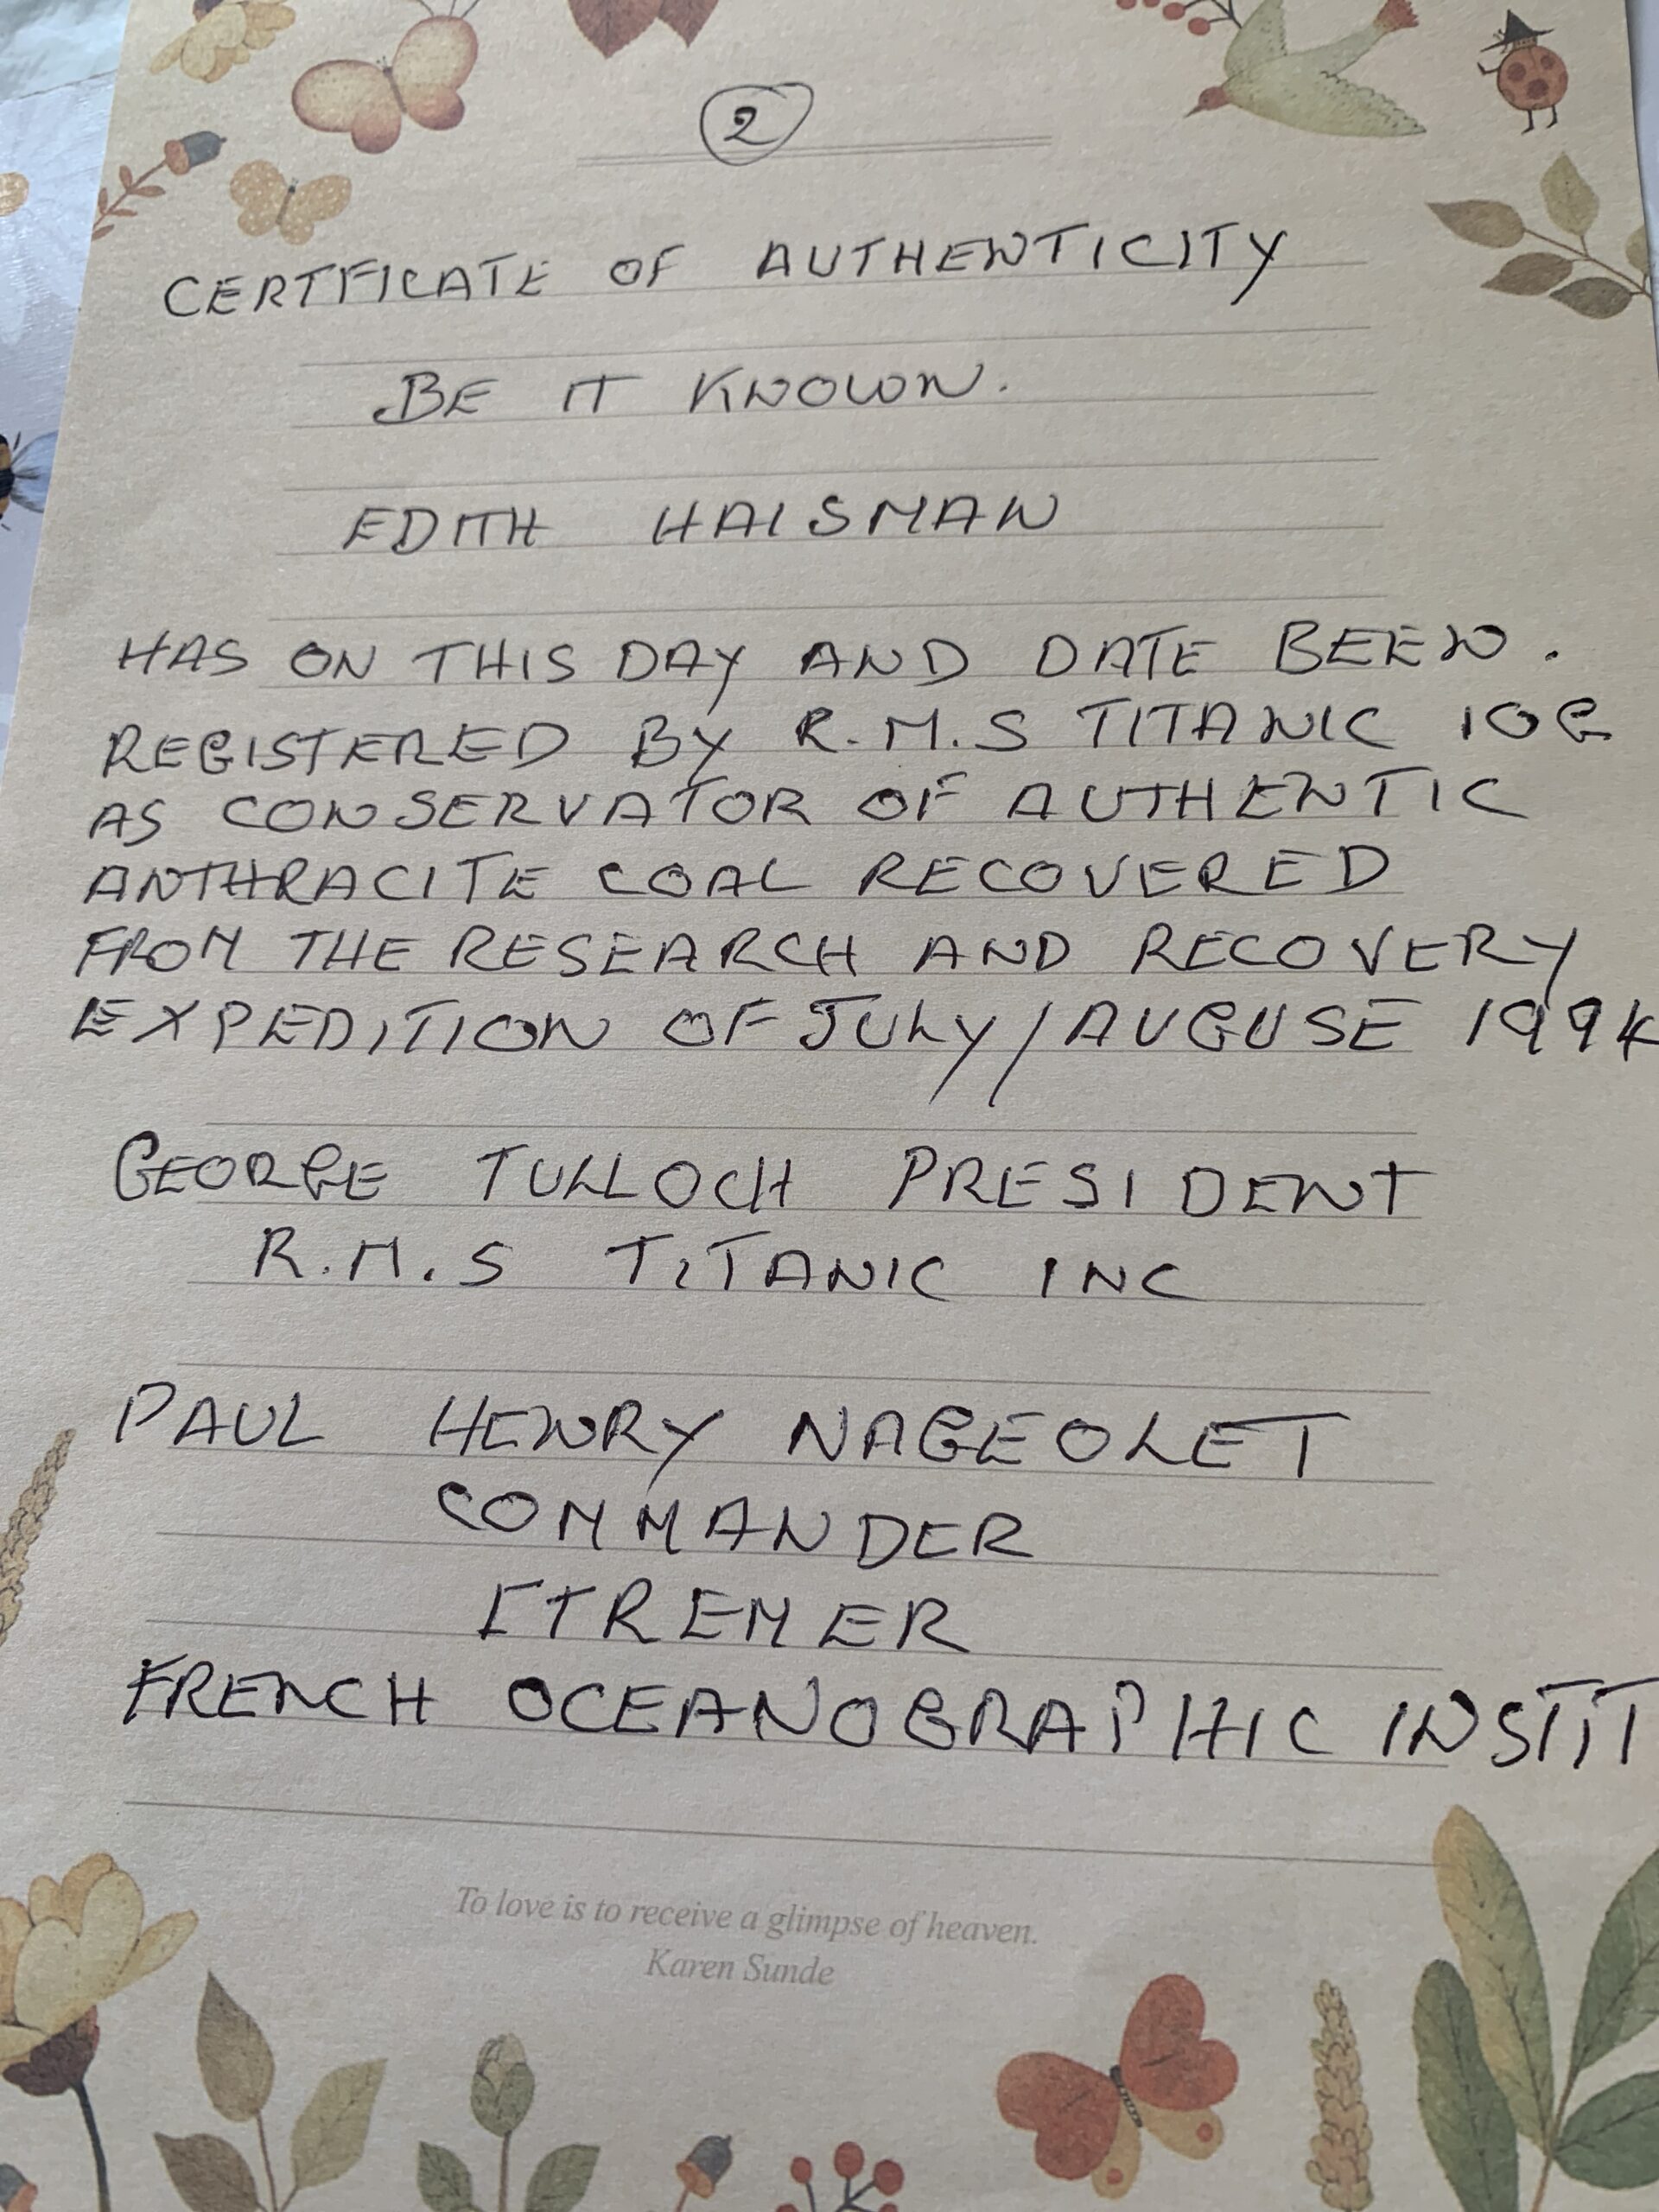 2
CERTFICATE OF AUTHENTICITY
BE IT KNOWN.
EDITH HAISMAN
HAS ON THIS DAY AND DATE BEEN.
REGISTERED BY R.M.S TITANIC IOG
AS CONSERVATOR OF AUTHENTIC
ANTHRACITE COAL RECOVERED
FROM THE RESEARCH AND RECOVERY
EXPEDITION OF JULY/AUGUSE 1994
GEORGE TULLOCH PRESIDENT
R.M.S TITANIC INC
PAUL HENRY NAGEOLET
COMMANDER
ITREMER
FRENCH OCEANOGRAPHIC INSTIT
To love is to receive a glimpse of heaven.
Karen Sunde